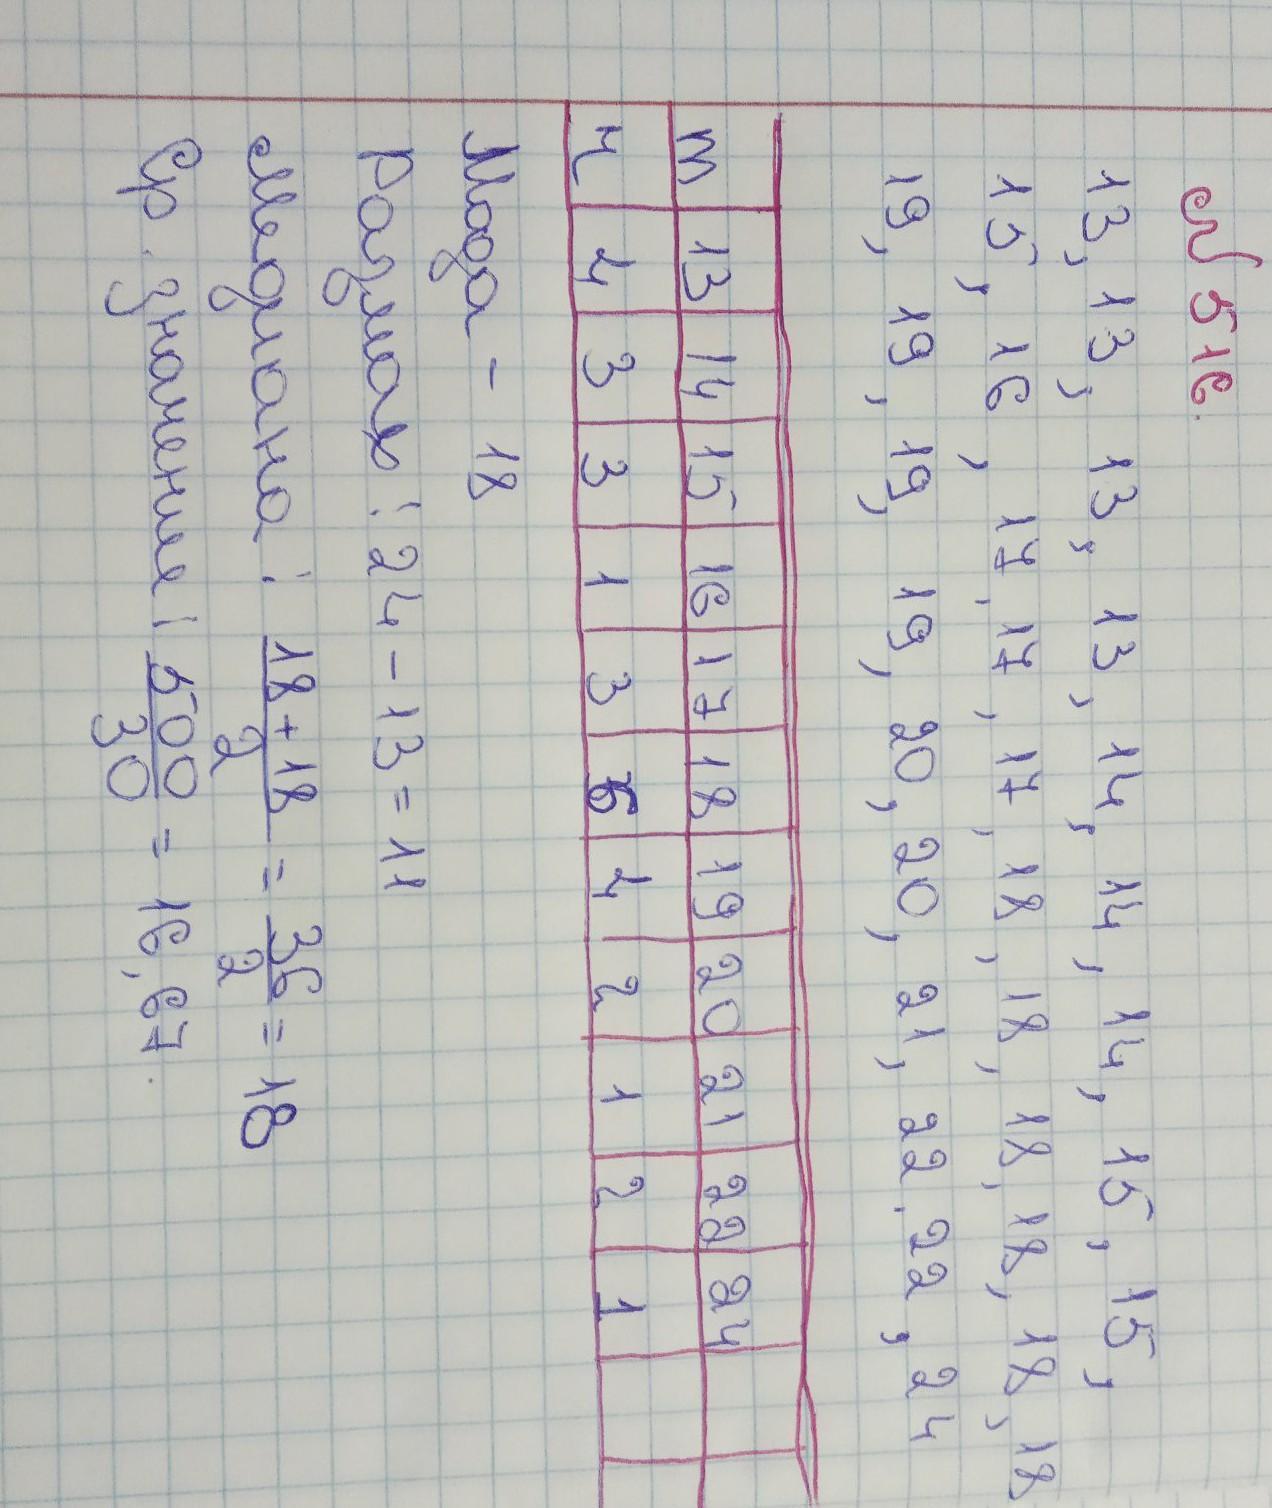 № 516.
13, 13, 13, 13, 14, 14, 14, 15, 15,
15, 16, 17, 17, 17, 18, 18, 18, 18, 18, 18
19, 19, 19, 19, 20, 20, 21, 22, 22, 24
m 13 14 15 16 17 18 19 20 21 22 24
ч 4 3 3 1 3 6 4 2 1 2 1
Мода - 18
Размах: 24 - 13 = 11
Медиана: 18 + 18 / 2 = 36 / 2 = 18
Ср. значение: 500 / 30 = 16,67.